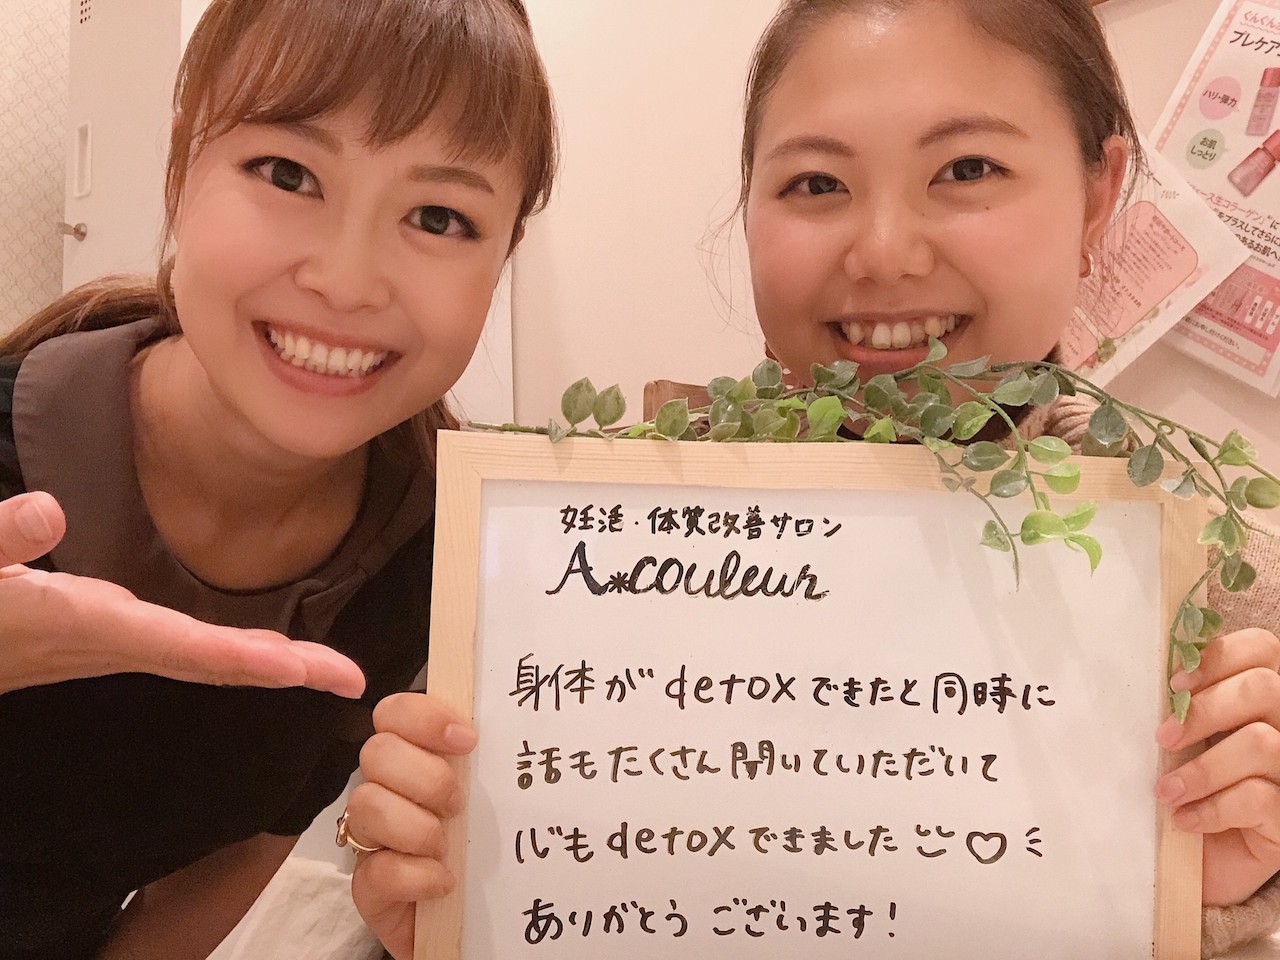 妊活・体質改善サロン
A*couleur
身体がdetoxできたと同時に
話もたくさん聞いていただいて
心もdetoxできました♡
ありがとうございます!
プレケア
ハリ・弾力
お肌
しっとり